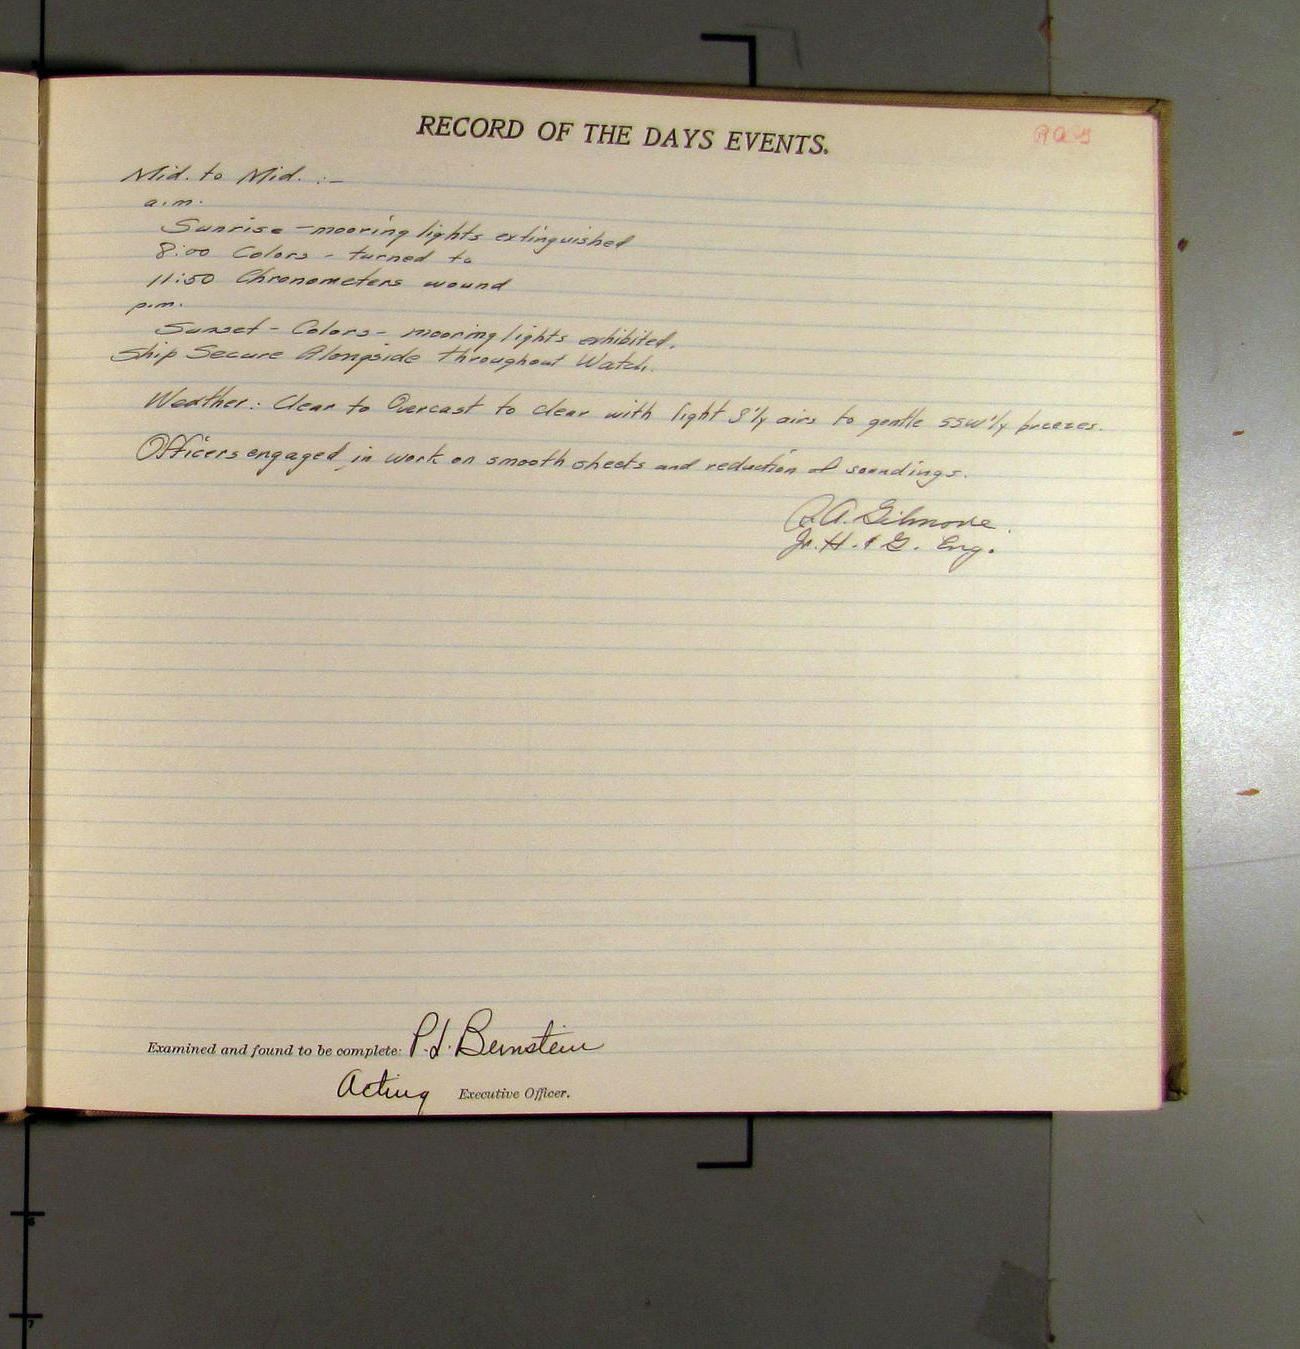 RECORD OF THE DAYS EVENTS.
RAG
Mid. to Mid. :-
a.m.
Sunrise - mooring lights extinguished
8:00 Colors - turned to
11:50 Chronometers wound
p.m.
Sunset - Colors - mooring lights exhibited.
Ship Secure Alongside throughout Watch.
Weather: Clear to Overcast to clear with light S'ly airs to gentle SSW'ly breezes.
Officers engaged in work on smooth sheets and reduction of soundings.
R.A. Gilmore
Jr. H. & G. Eng.
Examined and found to be complete: P.L. Bernstein
Acting Executive Officer.
6
7